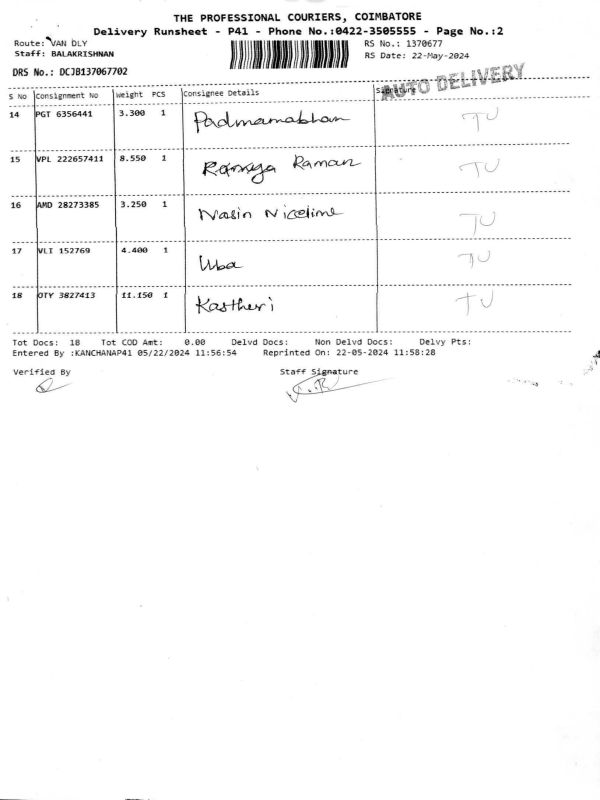 THE PROFESSIONAL COURIERS, COIMBATORE
Delivery Runsheet - P41 - Phone No.:0422-3505555 - Page No.:2
Route: VAN DLY RS No.: 1370677
Staff: BALAKRISHNAN RS Date: 22-May-2024
DRS No.: DCJB137067702
AUTO DELIVERY
S No Consignment No Weight PCS Consignee Details Signature
14 PGT 6356441 3.300 1 Padmamabhan TU
15 VPL 222657411 8.550 1 Ramya Raman TU
16 AMD 28273385 3.250 1 Nasin TU
17 VLI 152769 4.400 1 TU
18 OTY 3827413 11.150 1 Kastheri TU
Tot Docs: 18 Tot COD Amt: 0.00 Delvd Docs: Non Delvd Docs: Delvy Pts:
Entered By :KANCHANAP41 05/22/2024 11:56:54 Reprinted On: 22-05-2024 11:58:28
Verified By Staff Signature